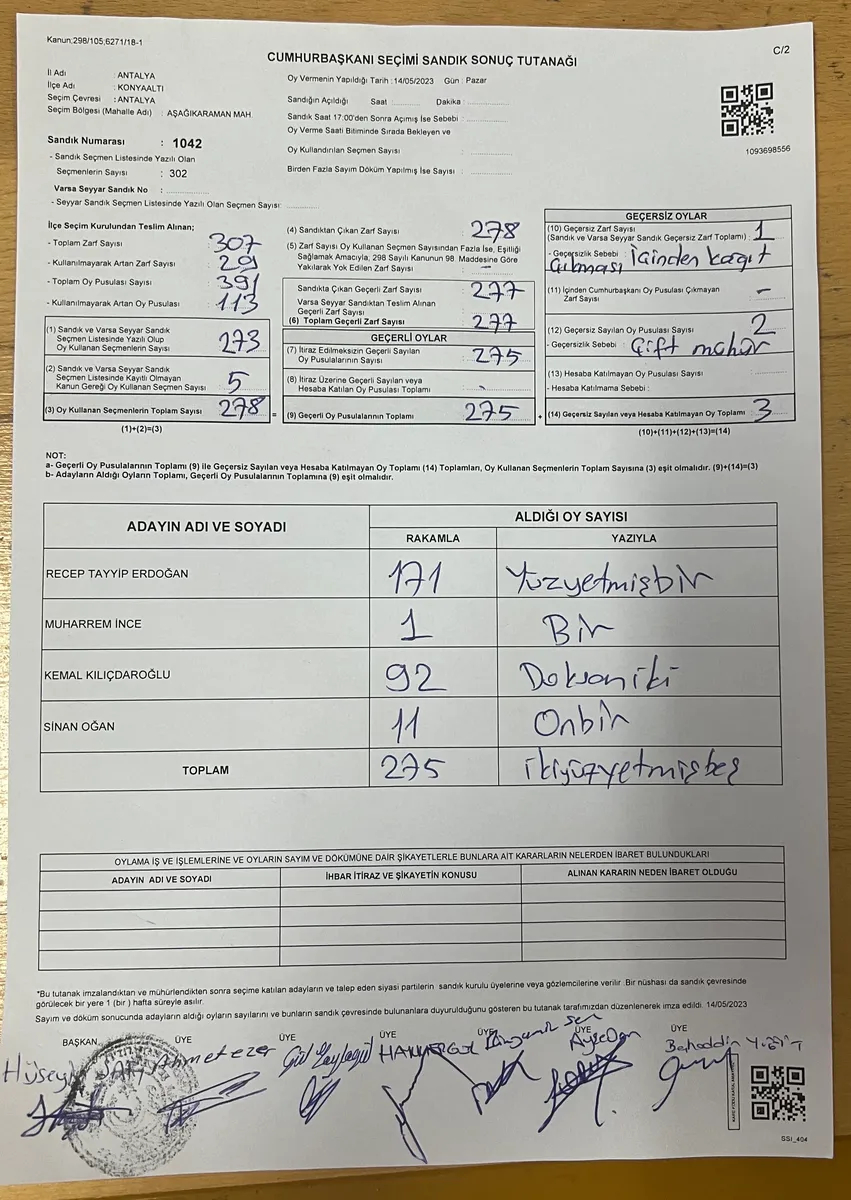 Kanun,298/105,6271/18-1
C/2
CUMHURBAŞKANI SEÇİMİ SANDIK SONUÇ TUTANAĞI
İl Adı : ANTALYA
İlçe Adı : KONYAALTI
Seçim Çevresi : ANTALYA
Seçim Bölgesi (Mahalle Adı) : AŞAĞIKARAMAN MAH.
Sandık Numarası : 1042
- Sandık Seçmen Listesinde Yazılı Olan
Seçmenlerin Sayısı : 302
Varsa Seyyar Sandık No :
- Seyyar Sandık Seçmen Listesinde Yazılı Olan Seçmen Sayısı:
Oy Vermenin Yapıldığı Tarih :14/05/2023 Gün : Pazar
Sandığın Açıldığı Saat Dakika :
Sandık Saat 17.00'den Sonra Açımış İse Sebebi :
Oy Verme Saati Bitiminde Sırada Bekleyen ve
Oy Kullandırılan Seçmen Sayısı :
Birden Fazla Sayım Döküm Yapılmış İse Sayısı :
1093698556
İlçe Seçim Kurulundan Teslim Alınan;
- Toplam Zarf Sayısı : 307
- Kullanılmayarak Artan Zarf Sayısı : 29
- Toplam Oy Pusulası Sayısı : 391
- Kullanılmayarak Artan Oy Pusulası : 113
(1) Sandık ve Varsa Seyyar Sandık
Seçmen Listesinde Yazılı Olup
Oy Kullanan Seçmenlerin Sayısı : 273
(2) Sandık ve Varsa Seyyar Sandık
Seçmen Listesinde Kayıtlı Olmayan
Kanun Gereği Oy Kullanan Seçmen Sayısı : 5
(3) Oy Kullanan Seçmenlerin Toplam Sayısı : 278 =
(1)+(2)=(3)
(4) Sandıktan Çıkan Zarf Sayısı : 278
(5) Zarf Sayısı Oy Kullanan Seçmen Sayısından Fazla İse, Eşitliği
Sağlamak Amacıyla, 298 Sayılı Kanunun 98. Maddesine Göre
Yakılarak Yok Edilen Zarf Sayısı : –
Sandıkta Çıkan Geçerli Zarf Sayısı : 277
Varsa Seyyar Sandıktan Teslim Alınan
Geçerli Zarf Sayısı :
(6) Toplam Geçerli Zarf Sayısı : 277
GEÇERLİ OYLAR
(7) İtiraz Edilmeksizin Geçerli Sayılan
Oy Pusulalarının Sayısı : 275
(8) İtiraz Üzerine Geçerli Sayılan veya
Hesaba Katılan Oy Pusulası Toplamı : -
(9) Geçerli Oy Pusulalarının Toplamı : 275 +
GEÇERSİZ OYLAR
(10) Geçersiz Zarf Sayısı
(Sandık ve Varsa Seyyar Sandık Geçersiz Zarf Toplamı) : 1
- Geçersizlik Sebebi : İçinden kağıt
çıkması
(11) İçinden Cumhurbaşkanı Oy Pusulası Çıkmayan
Zarf Sayısı : –
(12) Geçersiz Sayılan Oy Pusulası Sayısı : 2
- Geçersizlik Sebebi : Çift mühür
(13) Hesaba Katılmayan Oy Pusulası Sayısı :
- Hesaba Katılmama Sebebi :
(14) Geçersiz Sayılan veya Hesaba Katılmayan Oy Toplamı : 3
(10)+(11)+(12)+(13)=(14)
NOT:
a- Geçerli Oy Pusulalarının Toplamı (9) ile Geçersiz Sayılan veya Hesaba Katılmayan Oy Toplamı (14) Toplamları, Oy Kullanan Seçmenlerin Toplam Sayısına (3) eşit olmalıdır. (9)+(14)=(3)
b- Adayların Aldığı Oyların Toplamı, Geçerli Oy Pusulalarının Toplamına (9) eşit olmalıdır.
ADAYIN ADI VE SOYADI ALDIĞI OY SAYISI
RAKAMLA YAZIYLA
RECEP TAYYİP ERDOĞAN 171 Yüzyetmişbir
MUHARREM İNCE 1 Bir
KEMAL KILIÇDAROĞLU 92 Doksaniki
SİNAN OĞAN 11 Onbir
TOPLAM 275 ikiyüzyetmişbeş
OYLAMA İŞ VE İŞLEMLERİNE VE OYLARIN SAYIM VE DÖKÜMÜNE DAİR ŞİKAYETLERLE BUNLARA AİT KARARLARIN NELERDEN İBARET BULUNDUKLARI
ADAYIN ADI VE SOYADI İHBAR İTİRAZ VE ŞİKAYETİN KONUSU ALINAN KARARIN NEDEN İBARET OLDUĞU
*Bu tutanak imzalandıktan ve mühürlendikten sonra seçime katılan adayların ve talep eden siyasi partilerin sandık kurulu üyelerine veya gözlemcilerine verilir .Bir nüshası da sandık çevresinde
görülecek bir yere 1 (bir ) hafta süreyle asılır.
Sayım ve döküm sonucunda adayların aldığı oyların sayılarını ve bunların sandık çevresinde bulunanlara duyurulduğunu gösteren bu tutanak tarafımızdan düzenlenerek imza edildi. 14/05/2023
BAŞKAN ÜYE ÜYE ÜYE ÜYE ÜYE ÜYE
Ahmet ezer Gül Yaylagül Bahaddin YİĞİT
SSI_404